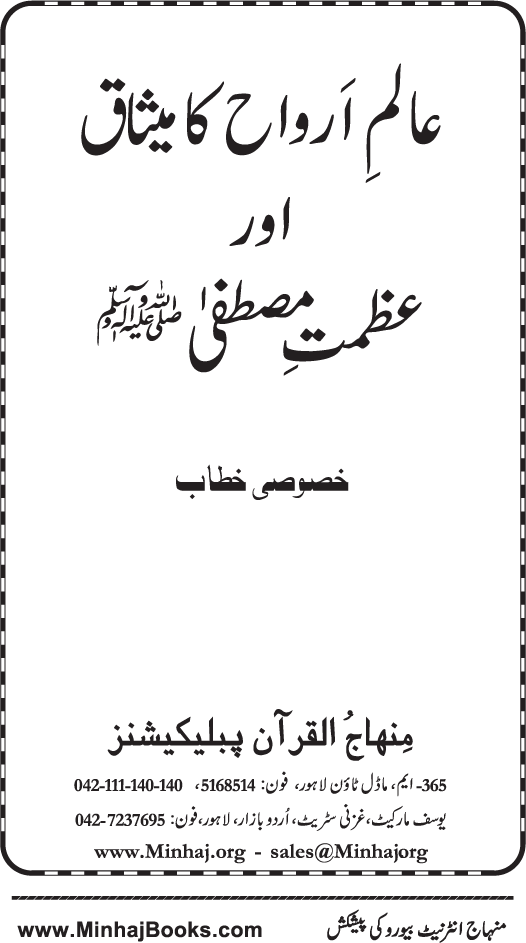 عالمِ اَرواح کا میثاق
اور
عظمتِ مصطفیٰ ﷺ
خصوصی خطاب
مِنہاجُ القرآن پبلیکیشنز
365- ایم، ماڈل ٹاؤن لاہور، فون: 5168514، 042-111-140-140
یوسف مارکیٹ، غزنی سٹریٹ، اُردو بازار، لاہور، فون: 042-7237695
www.Minhaj.org - sales@Minhaj.org
www.MinhajBooks.com منہاج انٹرنیٹ بیورو کی پیشکش